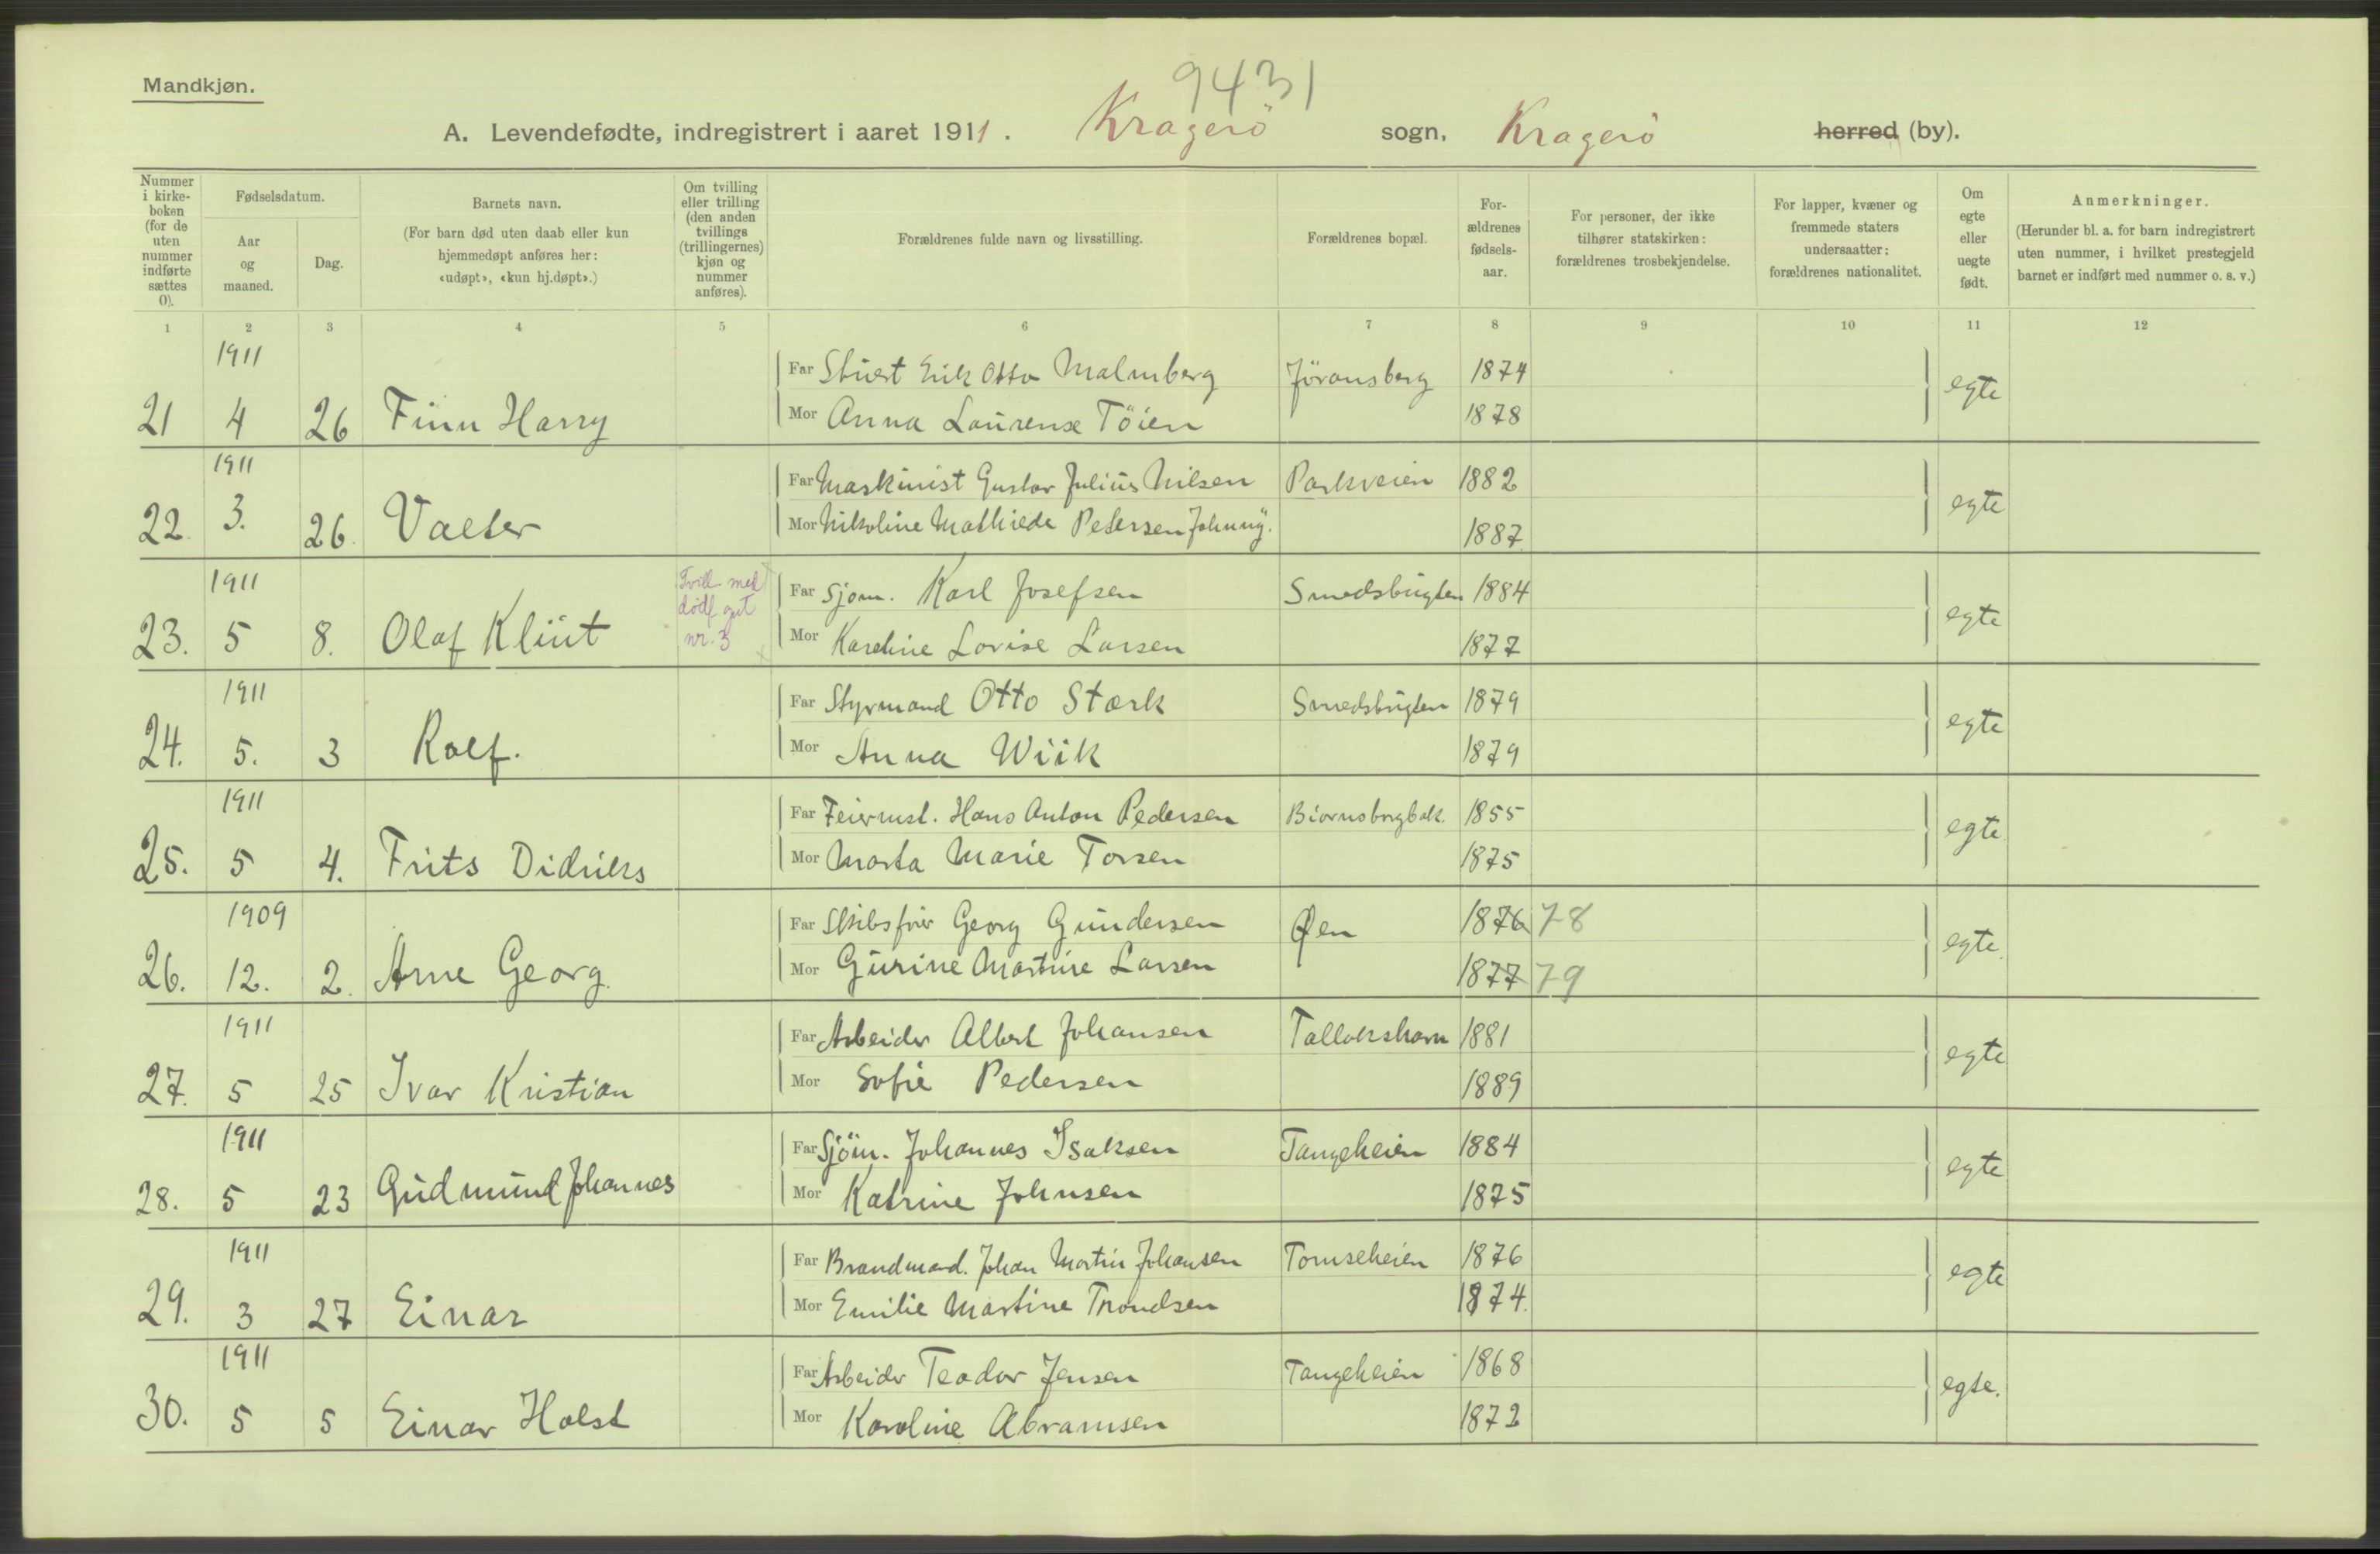 9431
Mandkjøn.
A. Levendefødte, indregistrert i aaret 1911. Kragerö sogn, Kragerö herred (by).
Nummer i kirkeboken (for de uten nummer indførte sættes 0).
Fødselsdatum.
Aar og maaned.
Dag.
Barnets navn.
(For barn død uten daab eller kun hjemmedøpt anføres her: «udøpt», «kun hj.døpt».)
Om tvilling eller trilling (den anden tvillings (trillingernes) kjøn og nummer anføres).
Forældrenes fulde navn og livsstilling.
Forældrenes bopæl.
Forældrenes fødselsaar.
For personer, der ikke tilhører statskirken: forældrenes trosbekjendelse.
For lapper, kvæner og fremmede staters undersaatter: forældrenes nationalitet.
Om egte eller uegte født.
Anmerkninger.
(Herunder bl. a. for barn indregistrert uten nummer, i hvilket prestegjeld barnet er indført med nummer o. s. v.)
1 2 3 4 5 6 7 8 9 10 11 12
1911
Far Erik Otto Malmberg Jöransberg 1874 egte
21 4 26 Finn Harry Mor Anna Laurense Töien 1878
1911
Far Maskinist Gustav Julius Nilsen Parkveien 1882 egte
22. 3. 26. Valter Mor Nikoline Mathilde Petersen 1887
1911
Tvill med dødf nr. 3
Far Sjøm. Karl Josefsen Smedsbugten 1884 egte
23. 5 8. Olaf Klint Mor Karoline Lovise Larsen 1877
1911
Far Styrmand Otto Stærk Smedsbugten 1879 egte
24. 5. 3 Rolf. Mor Anna Wiik 1879
1911
Far Feiermst. Hans Anton Pedersen Biørnsborgbak. 1855 egte
25. 5 4. Frits Didriks Mor Marta Marie Torsen 1875
1909
Far Skibsfør Georg Gundersen Øen 1876 78 egte
26. 12. 2. Arne Georg. Mor Gurine Martine Larsen 1877 79
1911
Far Arbeider Albert Johansen Tallakshavn 1881 egte
27. 5 25 Ivar Kristian Mor Sofie Pedersen 1889
1911
Far Sjöm. Johannes Isaksen Tangeheien 1884 egte
28. 5 23 Gudmund Johannes Mor Katrine Johnsen 1875
1911
Far Brandmand. Johan Martin Johansen Tomseheien 1876 egte
29. 3 27 Einar Mor Emilie Martine Trondsen 1874.
1911
Far Arbeider Teodor Jensen Tangeheien 1868 egte.
30. 5 5 Einar Holst Mor Karoline Abramsen 1872